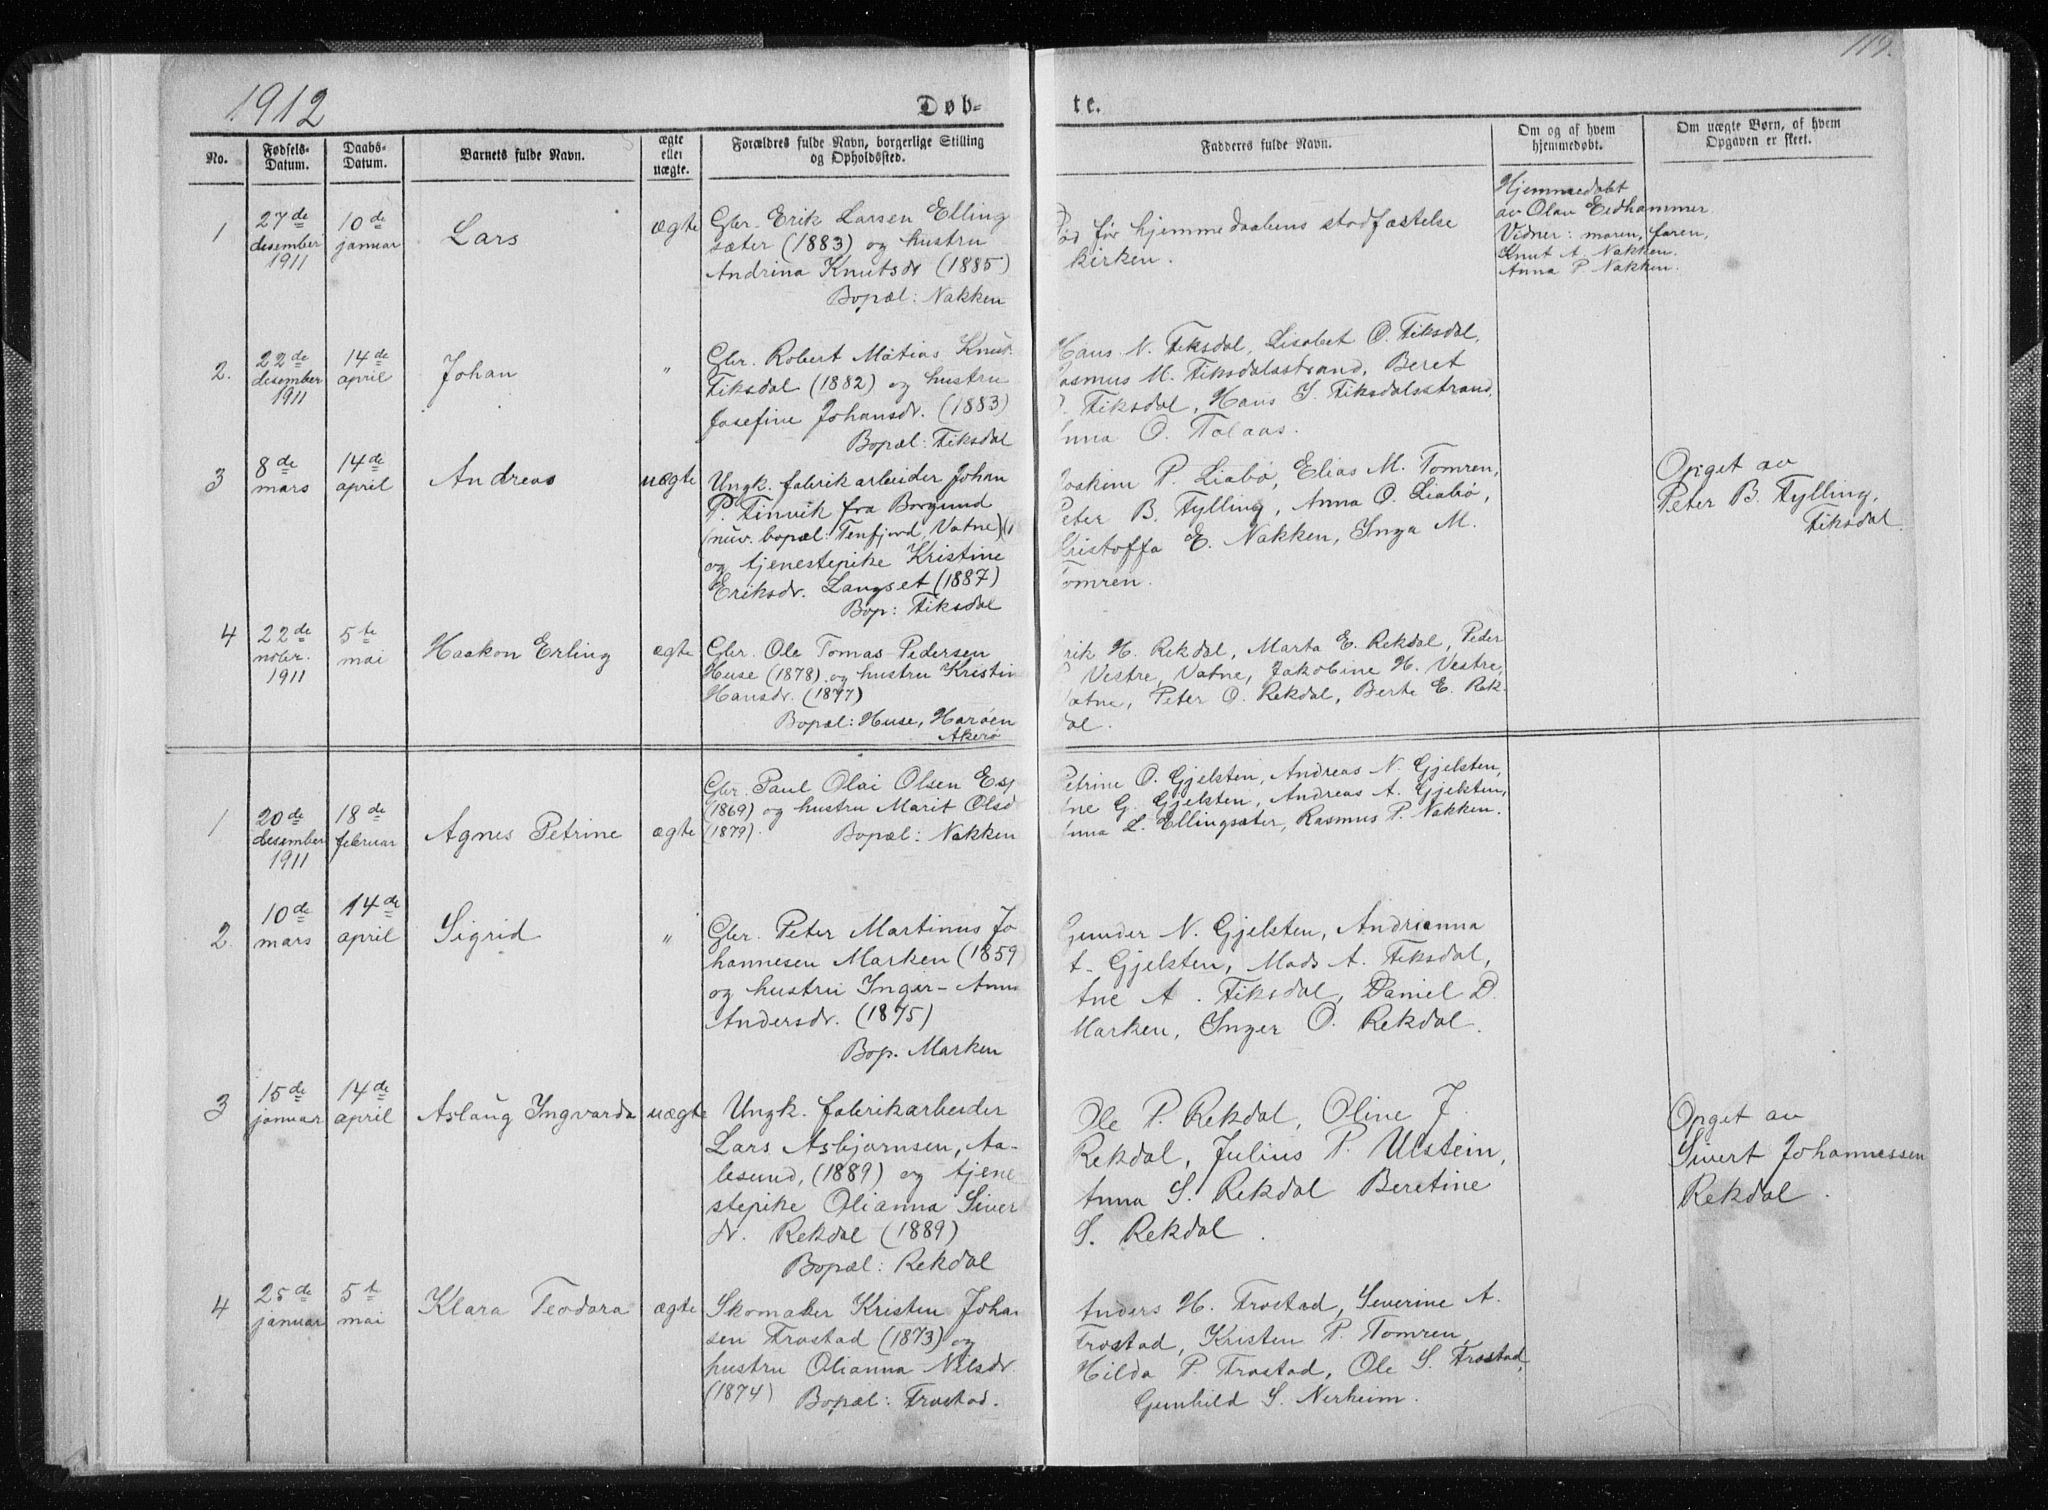 119.
1912
Døb-
te.
No.
Fødsels-
Datum.
Daabs-
Datum.
Barnets fulde Navn.
ægte
eller
uægte.
Forældres fulde Navn, borgerlige Stilling
og Opholdssted.
Fadderes fulde Navn.
Om og af hvem
hjemmedøbt.
Om uægte Børn, af hvem
Opgaven er skeet.
1
27de
desember
1911
10de
januar
Lars
ægte
Gbr. Erik Larsen Elling
sæter (1883) og hustru
Andrina Knutsdr (1885)
Bopæl: Nakken
død før hjemmedaabens stadfæstelse
kirken.
Hjemmedøbt
av Olav Eidhammer
Vidner: moren, faren,
Knut A. Nakken.
Anna P. Nakken.
2.
22de
desember
1911
14de
april
Johan
"
Gbr. Robert Mátias Knud
Fiksdal (1882) og hustru
Josefine Johansdr. (1883)
Bopæl: Fiksdal
Hans N. Fiksdal, Lisabet O. Fiksdal,
Rasmus M. Fiksdalsstrand, Beret
Fiksdal, Hans J. Fiksdalsstrand,
Anna O. Tolaas.
3
8de
mars
14de
april
Andreas
uægte
Ungk. fabrikarbeider Johan
P. Finvik fra Borgund
(nuv. bopæl: Tenfjord, Vatne) (1
og tjenestepike Kristine
Eriksdr. Langset (1887)
Bop: Fiksdal
Joakim P. Liabø, Elias M. Tomren,
Peter B. Fylling, Anna O. Liabø,
Kristoffa E. Nakken, Inga M.
Tomren.
Opget av
Peter B. Fylling,
Fiksdal.
4
22de
nobr.
1911
5te
mai
Haakon Erling
ægte
Gbr. Ole Tomas Pedersen
Huse (1878) og hustru Kristin
Hansdr. (1877)
Bopæl: Huse, Harøen
Akerø
Erik H. Rekdal, Marta E. Rekdal, Peder
P. Vestre, Vatne, Jakobine H. Vestre,
Vatne, Peter O. Rekdal, Berte E. Rek-
dal.
1
20de
desember
1911
18de
februar
Agnes Petrine
ægte
Gbr. Paul Olai Olsen Esp
(1869) og hustru Marit Olsd
(1879). Bopæl: Nakken
Petrine O. Gjelsten, Andreas N. Gjelsten,
Ane G. Gjelsten, Andreas A. Gjelsten,
Anna L. Ellingsæter, Rasmus P. Nakken.
2
10de
mars
14de
april
Sigrid
"
Gbr. Peter Martinus Jo
hannesen Marken (1859
og hustru Inger-Anna
Andersdr. (1875)
Bop. Marken
Gunder N. Gjelsten, Andrianna
A. Gjelsten, Mads A. Fiksdal,
Ane A. Fiksdal, Daniel D.
Marken, Inger O. Rekdal.
3
15de
januar
14de
april
Aslaug Ingvarda
uægte
Ungk. fabrikarbeider
Lars Asbjørnsen, Aa-
lesund, (1889) og tjene
stepike Olianna Siver
dr. Rekdal (1889)
Bopæl: Rekdal
Ole P. Rekdal, Oline J.
Rekdal, Julius P. Ulstein,
Anna S. Rekdal Beretine
S. Rekdal.
Opget av
Sivert Johannessen
Rekdal.
4
25de
januar
5t
mai
Klara Teodora
ægte
Skomaker Kristen Johan
sen Frostad (1873) og
hustru Olianna Nilsdr.
(1874) Bopæl: Frostad.
Anders H. Frostad, Severine A.
Frostad, Kristen P. Tomren,
Hilda P. Frostad, Ole S. Frostad,
Gunhild S. Nerheim.